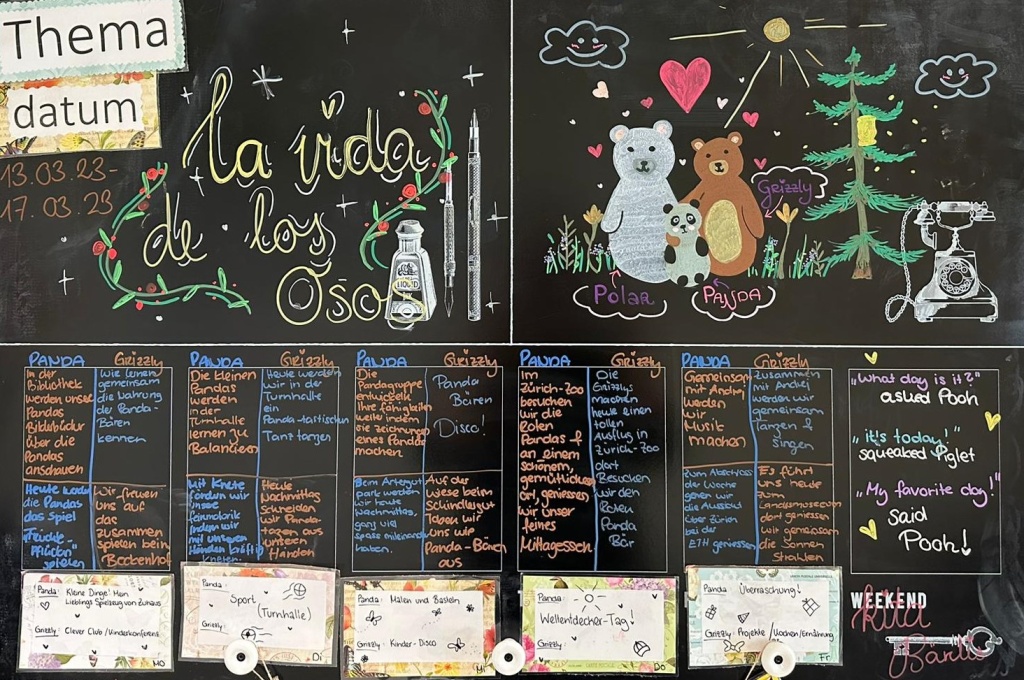 Thema
datum
13.03.23-
17.03.23
la vida
de los
Oso
LIQUID
Grizzly
Polar
PANDA
PANDA Grizzly
In der
Bibliothek
werden unsere
Pandas
Bilderbücher
über die
Pandas
anschauen
Wie lernen
gemeinsam
die Nahrung
der Panda-
Bären
kennen
die Pandas
das Spiel
spielen
Wir freuen
uns auf
das
zusammen
spielen beim
Beckenhof
PANDA Grizzly
Die kleinen
Pandas
werden
in der
Turnhalle
lernen zu
Balancieren
Heute werden
wir in der
Turnhalle
ein
Panda-tastischen
Tanz tanzen
Mit Knete
fördern wir
unsere
feinmotorik
indem wir
mit unseren
Händen kräftig
kneten
Heute
Nachmittag
Schneiden
wir Panda-
tatzen aus
unseren
Händen
PANDA Grizzly
Die
Pandagruppe
entwickelt
ihre fähigkeiten
weiter indem
sie zeichnungen
eines Pandas
machen
Panda
Bären
Disco!
Beim Artergut
park werden
wir heute
Nachmittag,
ganz viel
spass miteinander
haben.
Auf der
Wiese beim
Schindlergut
Toben wir
uns wie
Panda-Bären
aus
PANDA Grizzly
Im
Zürich-Zoo
besuchen
wir die
Roten
Pandas &
an einem
schönem,
gemütlichen
ort, geniessen
wir unser
feines
Mittagessen
Die
Grizzlys
machen
heute einen
tollen
Ausflug in
Zürich-Zoo
dort
Besuchen
wir den
Roten
Panda
Bär
PANDA Grizzly
Gemeinsam
mit Andrej
werden
wir
Musik
machen
Zusammen
mit Andrej
werden wir
gemeinsam
Tanzen &
Singen
Zum Abschluss
der Woche
gehen wir
die Aussicht
über Zürich
bei der
ETH geniessen
Es führt
uns heute
zum
Landesmuseum
dort geniessen
wir gemeinsam
die Sonnen
Strahlen
"What day is it?"
asked Pooh
"it's today!"
squeaked Piglet
"My favorite day!"
Said
Pooh!
Panda: Kleine Dinge! Mein
Lieblings Spielzeug von Zuhaus
Grizzly: Clever Club / Kinderkonferenz
MO
Panda:
Sport
(Turnhalle)
Grizzly:
Di
Panda: Malen und Basteln
Grizzly: Kinder-Disco
Mi
Panda:
Wellentdecker-Tag!
Grizzly:
Do
Panda: Überraschung!
Grizzly: Projekte / Kochen / Ernährung
Fr
WEEKEND
Kita
Bärli